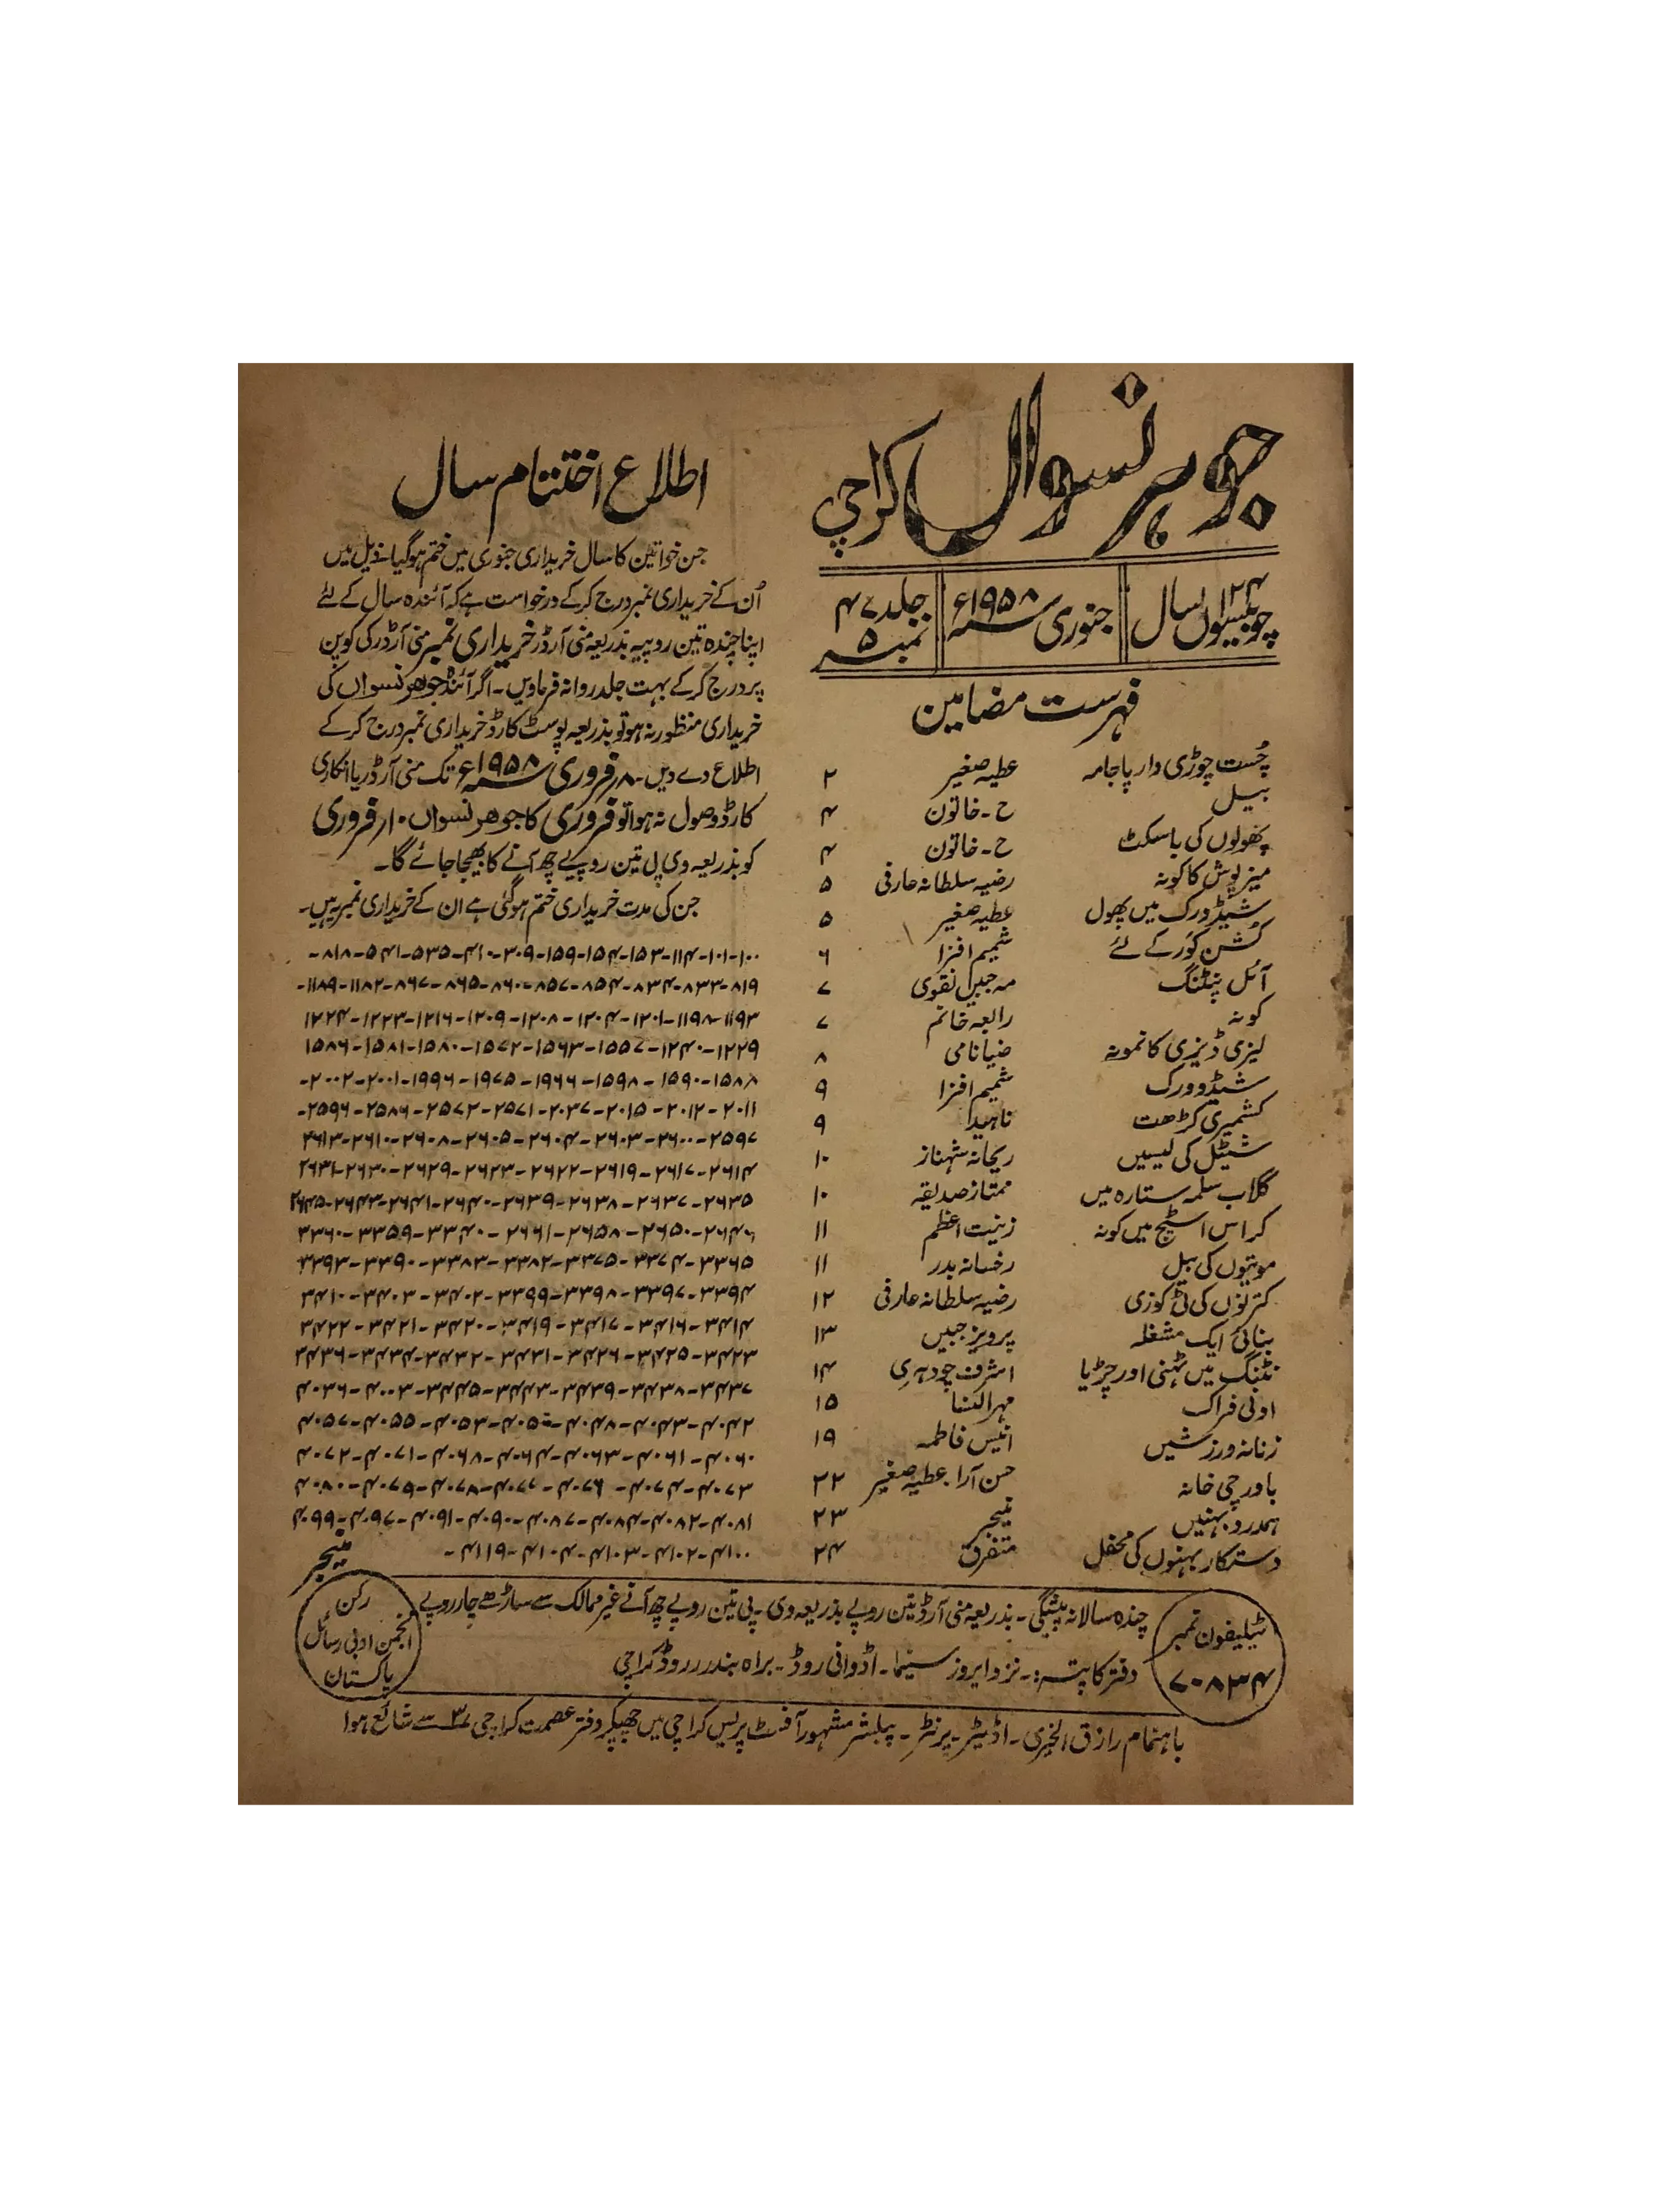 جوہر نسواں کراچی
چوبیسواں ۲۴ سال
جنوری ۱۹۵۸ء
جلد ۴۷
نمبر ۵
فہرست مضامین
چُست چوڑی دار پاجامہ عطیہ صغیر ۲
بیل ح۔خاتون ۴
پھولوں کی باسکٹ ح۔خاتون ۴
میز پوش کا کونہ رضیہ سلطانہ عارفی ۵
شیڈ ورک میں پھول عطیہ صغیر ۵
کُشن کَوَر کے لئے شمیم افزا ۶
آئل پنٹنگ مہ جبیں نقوی ۷
کونہ رابعہ خانم ۷
لیزی ڈیزی کا نمونہ ضیا نامی ۸
شیڈو ورک شمیم افزا ۹
کشمیری کڑھت ناہید ۹
شیٹل کی لیسیں ریحانہ شہناز ۱۰
گلاب سلمہ ستارہ میں ممتاز صدیقہ ۱۰
کراس اسٹیچ میں کونہ زینت اعظم ۱۱
موتیوں کی بیل رخسانہ بدر ۱۱
کترنوں کی ٹی کوزی رضیہ سلطانہ عارفی ۱۲
بنائی ایک مشغلہ پرویز جبیں ۱۳
نٹنگ میں ٹہنی اور چڑیا اشرف چودہری ۱۴
اونی فراک مہر النسا ۱۵
زنانہ ورزشیں انیس فاطمہ ۱۹
باورچی خانہ حسن آرا۔عطیہ صغیر ۲۲
ہمدرد بہنیں منیجر ۲۳
دستکار بہنوں کی محفل متفرق ۲۴
اطلاع اختتام سال
جن خواتین کا سال خریداری جنوری میں ختم ہوگیا۔ ذیل میں
اُن کے خریداری نمبر درج کر کے درخواست ہے کہ آئندہ سال کے لئے
اپنا چندہ تین روپیہ بذریعہ منی آرڈر خریداری نمبر منی آرڈر کی کوپن
پر درج کر کے بہت جلد روانہ فرماویں۔ اگر آئندہ جوھر نسواں کی
خریداری منظور نہ ہو تو بذریعہ پوسٹ کارڈ خریداری نمبر درج کر کے
اطلاع دے دیں۔ ۸ر فروری ۱۹۵۸ء تک منی آرڈر یا انکاری
کارڈ وصول نہ ہوا تو فروری کا جوھر نسواں ۱۰ر فروری
کو بذریعہ وی پی تین روپیے چھ آنے کا بھیجا جائے گا۔
جن کی مدت خریداری ختم ہو گئی ہے ان کے خریداری نمبر یہ ہیں۔
۱۰۰-۱۰۱-۱۱۴-۱۵۳-۱۵۴-۱۵۹-۳۰۹-۴۱۰-۵۳۵-۵۴۱-۸۱۸-
۸۱۹-۸۳۳-۸۳۴-۸۵۴-۸۵۷-۸۶۰-۸۶۵-۸۶۷-۱۱۸۲-۱۱۸۹-
۱۱۹۳-۱۱۹۸-۱۲۰۱-۱۲۰۴-۱۲۰۸-۱۲۰۹-۱۲۱۶-۱۲۲۳-۱۲۲۴
۱۲۲۹-۱۲۴۰-۱۵۵۷-۱۵۶۳-۱۵۷۲-۱۵۸۰-۱۵۸۱-۱۵۸۶
۱۵۸۸-۱۵۹۰-۱۵۹۸-۱۹۶۶-۱۹۷۵-۱۹۹۶-۲۰۰۱-۲۰۰۲-
۲۰۱۱-۲۰۱۲-۲۰۱۵-۲۰۳۷-۲۵۷۱-۲۵۷۲-۲۵۸۶-۲۵۹۶-
۲۵۹۷-۲۶۰۰-۲۶۰۳-۲۶۰۴-۲۶۰۵-۲۶۰۸-۲۶۱۰-۲۶۱۳
۲۶۱۴-۲۶۱۷-۲۶۱۹-۲۶۲۲-۲۶۲۳-۲۶۲۹-۲۶۳۰-۲۶۳۱
۲۶۳۵-۲۶۳۷-۲۶۳۸-۲۶۳۹-۲۶۴۰-۲۶۴۱-۲۶۴۳-۲۶۴۵
۲۶۴۶-۲۶۵۰-۲۶۵۸-۲۶۶۱-۳۳۴۰-۳۳۵۹-۳۳۶۰
۳۳۶۵-۳۳۷۴-۳۳۷۵-۳۳۸۲-۳۳۸۳-۳۳۹۰-۳۳۹۳
۳۳۹۴-۳۳۹۶-۳۳۹۸-۳۳۹۹-۳۴۰۲-۳۴۰۳-۳۴۱۰
۳۴۱۴-۳۴۱۶-۳۴۱۷-۳۴۱۹-۳۴۲۰-۳۴۲۱-۳۴۲۲
۳۴۲۳-۳۴۲۵-۳۴۲۶-۳۴۳۱-۳۴۳۲-۳۴۳۴-۳۴۳۶
۳۴۳۷-۳۴۳۸-۳۴۳۹-۳۴۴۳-۳۴۴۵-۴۰۰۳-۴۰۳۶
۴۰۴۲-۴۰۴۳-۴۰۴۷-۴۰۵۰-۴۰۵۳-۴۰۵۵-۴۰۵۷
۴۰۶۰-۴۰۶۱-۴۰۶۳-۴۰۶۴-۴۰۶۷-۴۰۷۱-۴۰۷۲
۴۱۰۰-۴۱۰۲-۴۱۰۳-۴۱۰۴-۴۱۱۹-
منیجر
ٹیلیفون نمبر
۷۰۸۳۴
چندہ سالانہ پیشگی۔ بذریعہ منی آرڈر تین روپے بذریعہ وی۔ پی تین روپے چھ آنے غیر ممالک سے ساڑھے چار روپے
دفتر کا پتہ:۔ نزد ایروز سینما۔ اڈوانی روڈ۔ براہ بندر روڈ کراچی
رکن
انجمن ادبی رسائل
پاکستان
باہتمام رازق الخیری۔ اڈیٹر۔ پرنٹر۔ پبلشر مشہور آفسٹ پریس کراچی میں چھپکر دفتر عصمت کراچی ۳ سے شائع ہوا